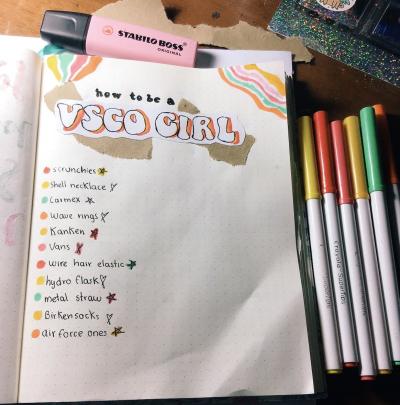 STABILO BOSS
ORIGINAL
how to be a
VSCO GIRL
scrunchies
Shell necklace
Carmex
Wave rings
Kanken
Vans
Wire hair elastic
hydro flask
metal straw
Birkensocks
air force ones